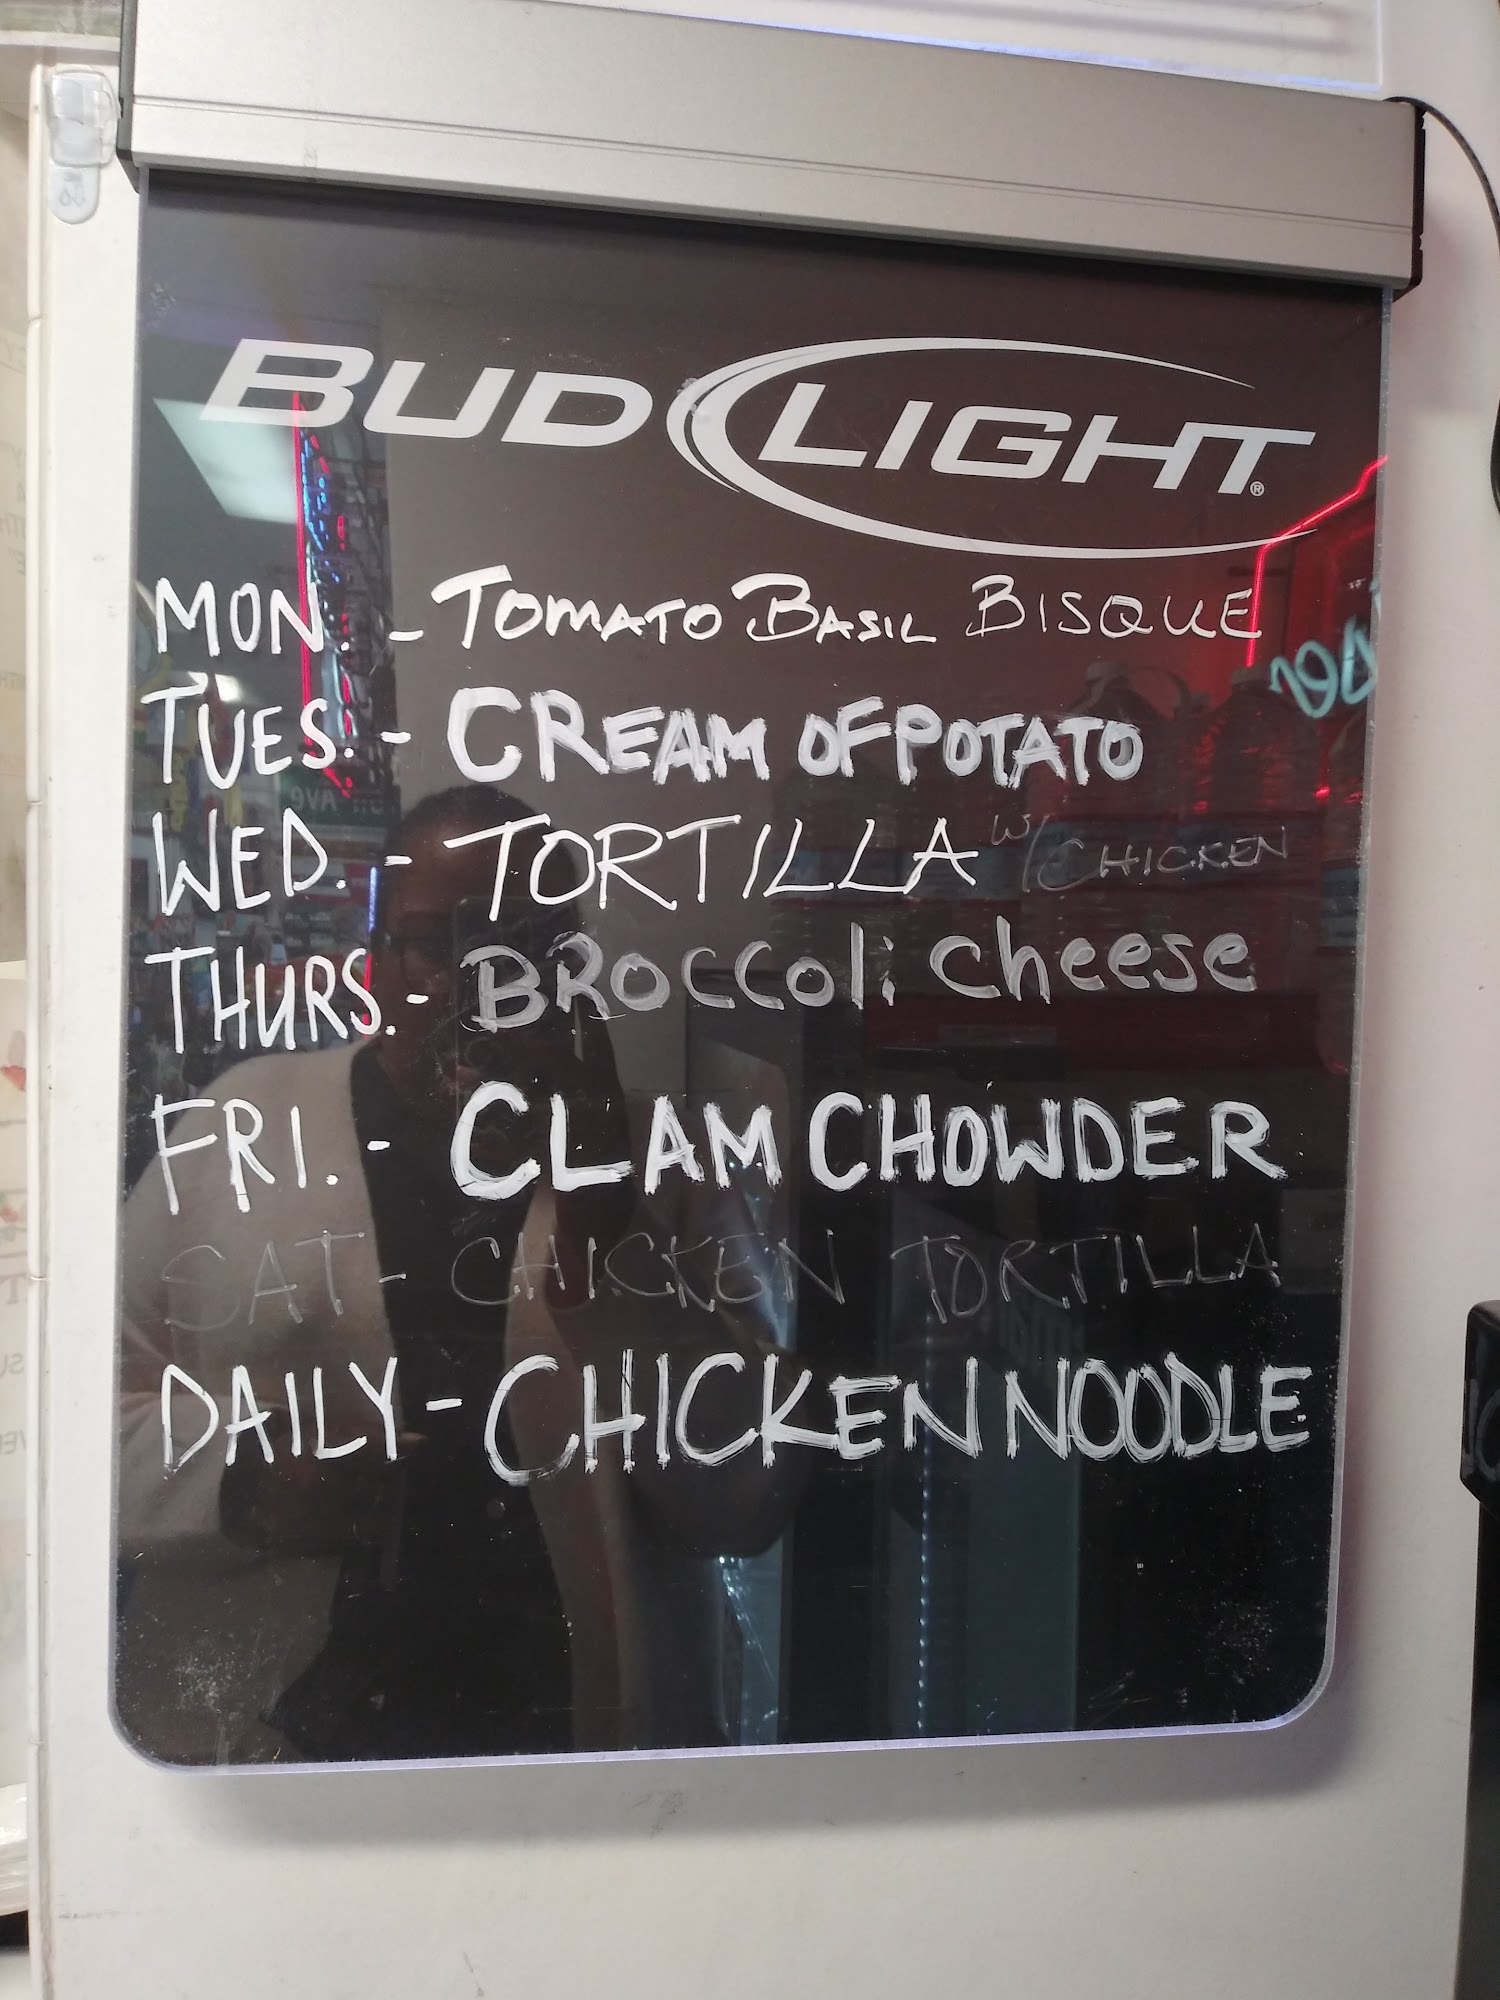 BUD LIGHT®
MON. - TOMATO BASIL BISQUE
TUES. - CREAM OF POTATO
WED. - TORTILLA W/ CHICKEN
THURS. - BROCCOli Cheese
FRI. - CLAM CHOWDER
SAT - CHICKEN TORTILLA
DAILY - CHICKEN NOODLE